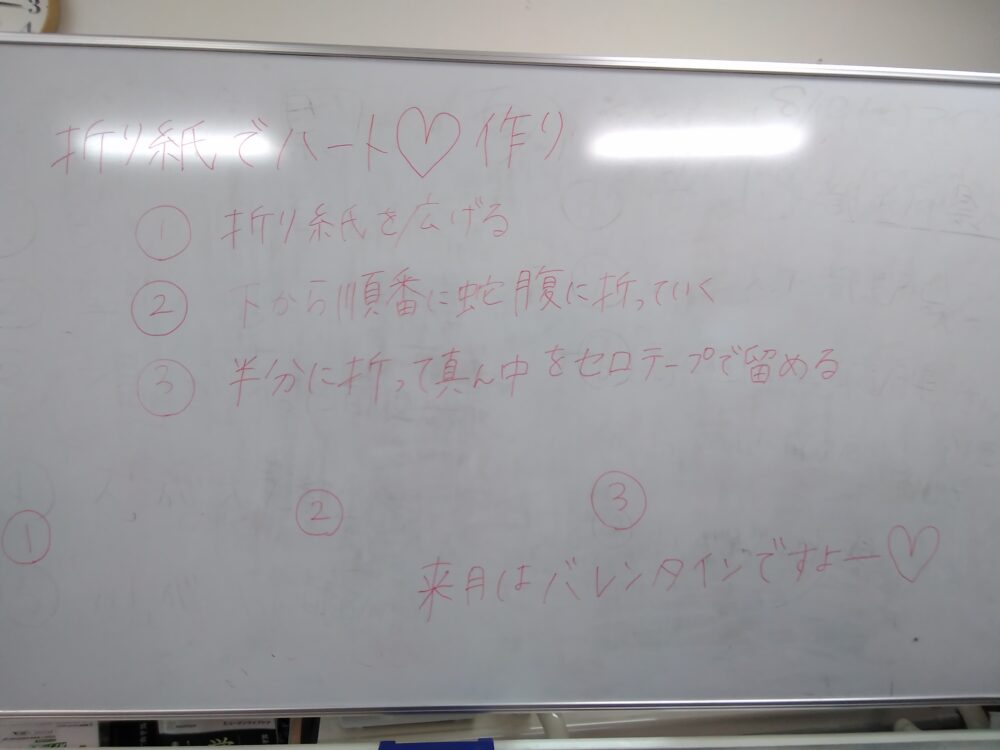 折り紙でハート♡作り
① 折り紙を広げる
② 下から順番に蛇腹に折っていく
③ 半分に折って真ん中をセロテープで留める
① ② ③
来月はバレンタインですよー♡